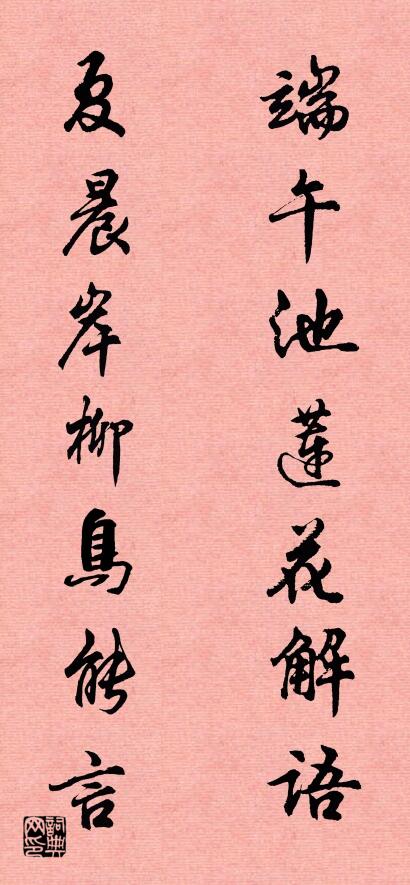 端午池莲花解语
夏晨岸柳鸟能言
詞典网印